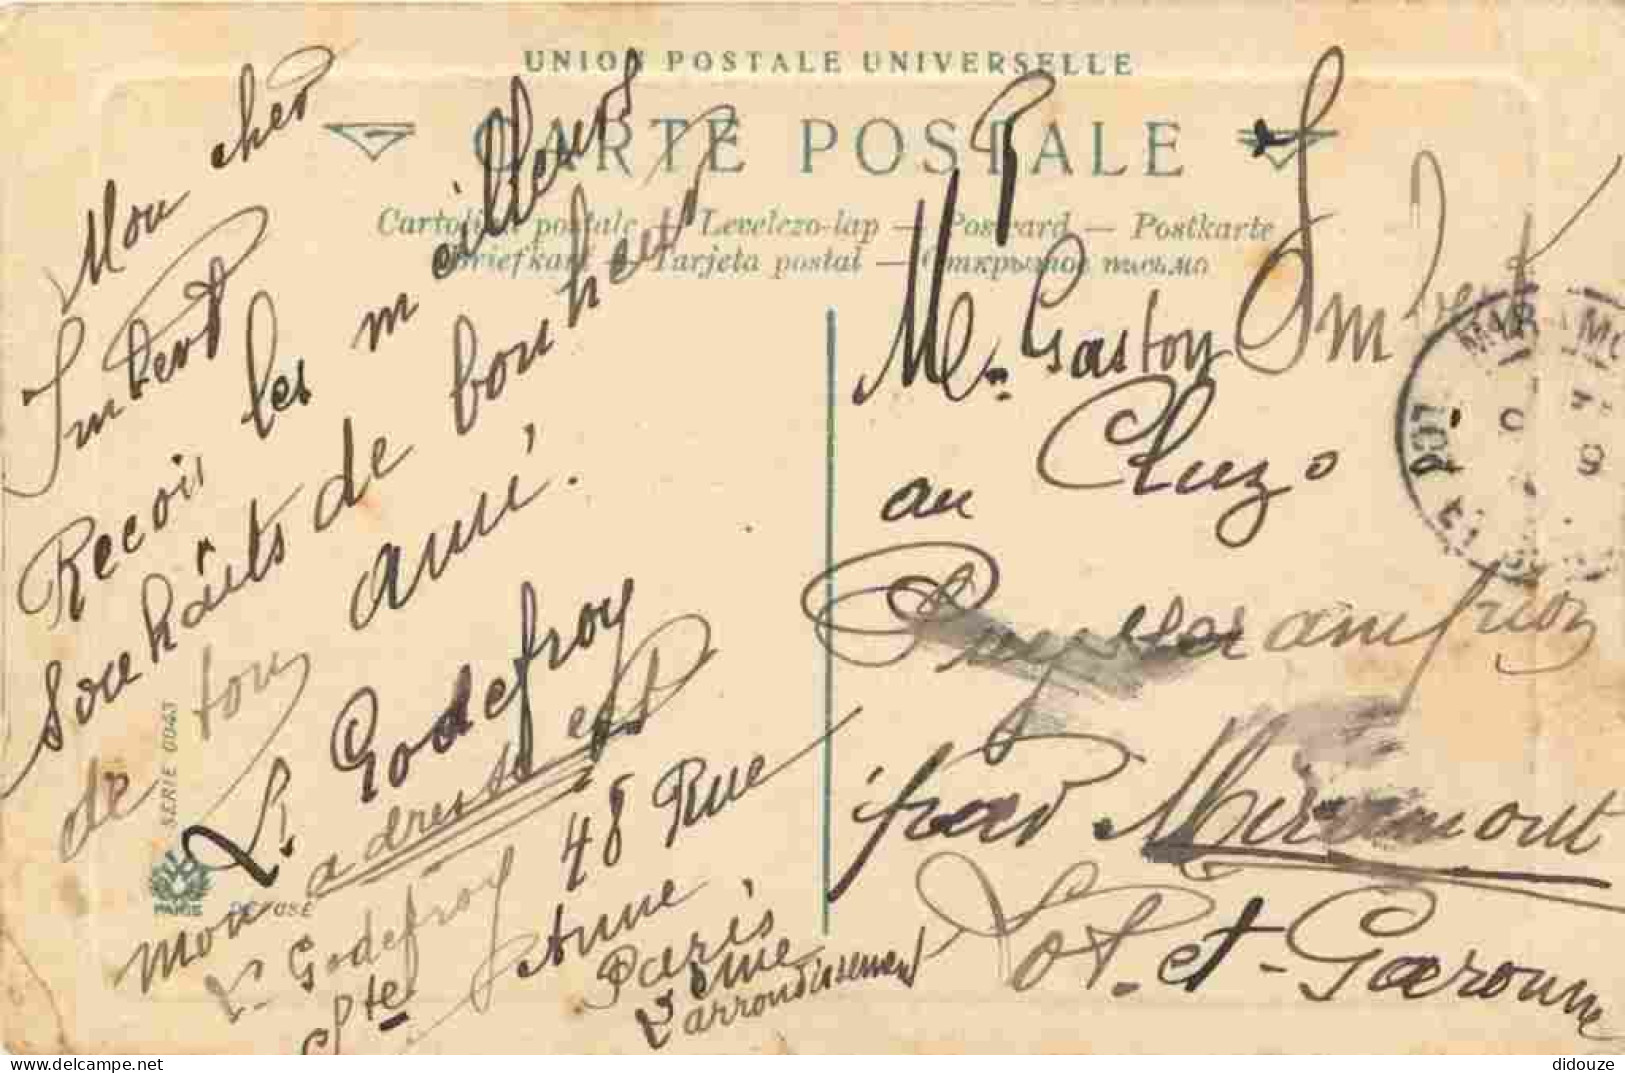 UNION POSTALE UNIVERSELLE
CARTE POSTALE
Cartolina postale — Levelezo-lap — Postcard — Postkarte
Briefkart — Tarjeta postal — Открытое письмо
Mon cher
Imbert
Recois les meilleurs
souhaits de bonheur
de ton ami.
L. Godefroy
mon adresse est
L. Godefroy 48 Rue
Ste Anne
Paris
2eme
arrondissement
SERIE 0043
PARIS
DEPOSÉ
Mr. Gaston Imbert
au Cluzo
par Miramont
Lot-et-Garonne
LOT ET
didouze